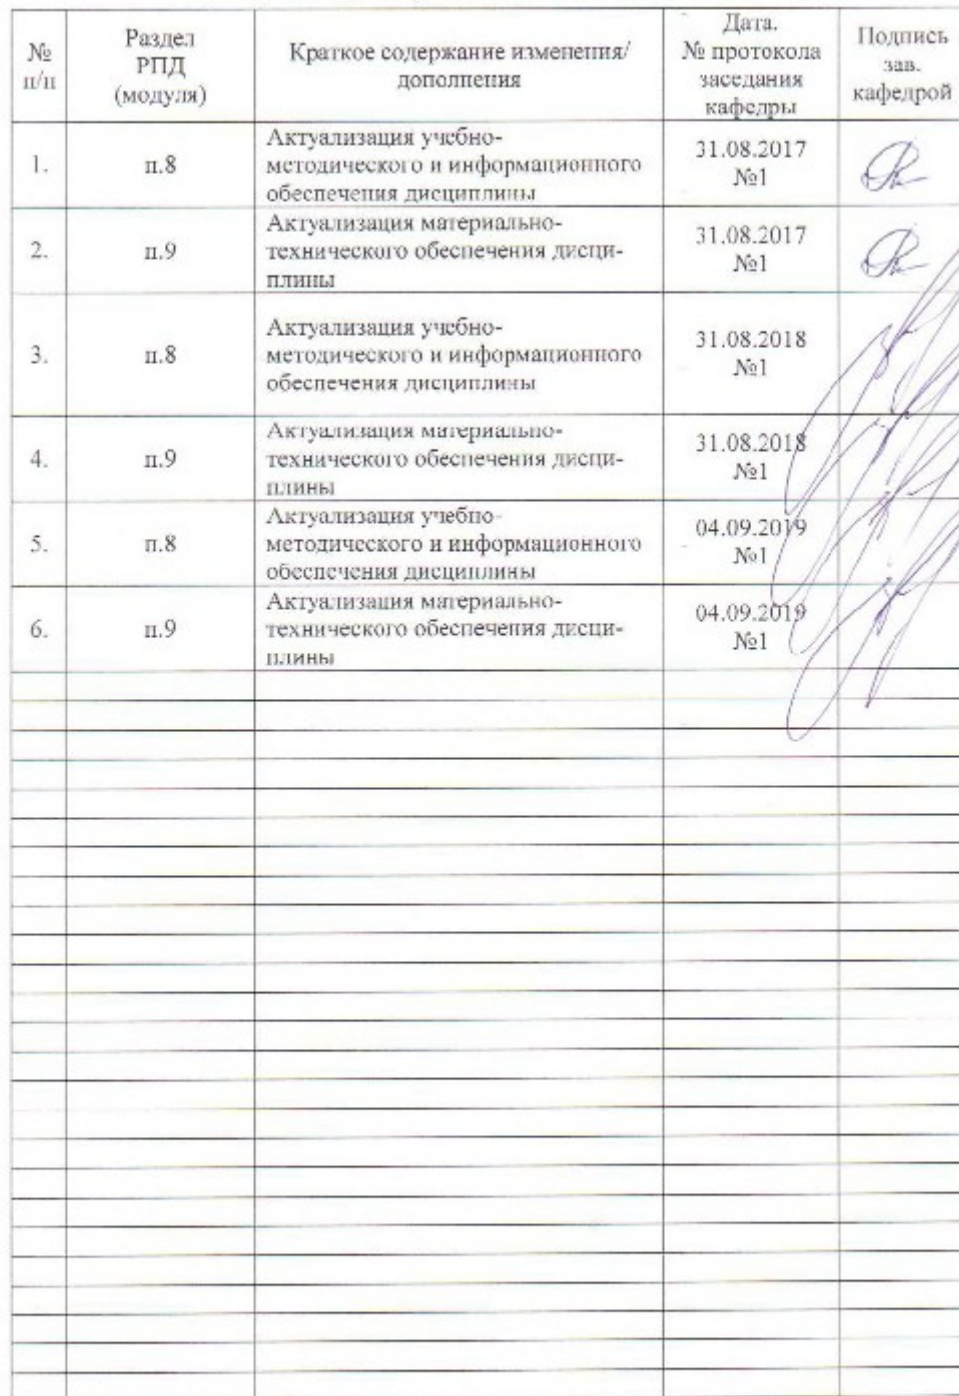 №
п/п
Раздел
РПД
(модуля)
Краткое содержание изменения/
дополнения
Дата.
№ протокола
заседания
кафедры
Подпись
зав.
кафедрой
1.
п.8
Актуализация учебно-
методического и информационного
обеспечения дисциплины
31.08.2017
№1
2.
п.9
Актуализация материально-
технического обеспечения дисци-
плины
31.08.2017
№1
3.
п.8
Актуализация учебно-
методического и информационного
обеспечения дисциплины
31.08.2018
№1
4.
п.9
Актуализация материально-
технического обеспечения дисци-
плины
31.08.2018
№1
5.
п.8
Актуализация учебно-
методического и информационного
обеспечения дисциплины
04.09.2019
№1
6.
п.9
Актуализация материально-
технического обеспечения дисци-
плины
04.09.2019
№1